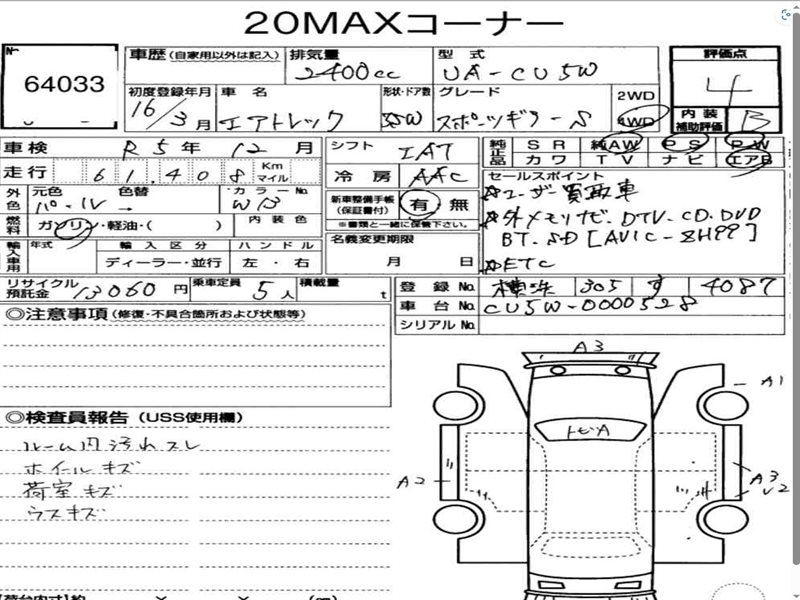 20MAXコーナー
No 64033
車歴(自家用以外は記入) 排気量 2400cc 型式 UA-CU5W
評価点 4
初度登録年月 16/3月 車名 エアトレック 形状・ドア数 5W グレード スポーツギアーS 2WD 4WD
内装補助評価 B
車検 R5年12月 シフト IAT 純正品 SR 純AW PS PW
カワ TV ナビ エアB
走行 61,408 Km マイル 冷房 AAC
外色 元色 パール 色替 → カラーNo W13
新車整備手帳(保証書付) 有 無
※書類と一緒に保管下さい。
セールスポイント
☆ユーザー買取車
☆外メモリナビ.DTV.CD.DVD
BT.SD[AVIC-ZH99]
☆ETC
燃料 ガソリン・軽油・( ) 内装色
名義変更期限 月 日
輸入車用 年式 輸入区分 ディーラー・並行 ハンドル 左・右
リサイクル預託金 13060円 乗車定員 5人 積載量 t
登録No. 横浜 305 す 4087
車台No. CU5W-0000528
シリアルNo.
◎注意事項(修復・不具合箇所および状態等)
◎検査員報告(USS使用欄)
ルーム内汚れスレ
ホイールキズ
荷室キズ
ウスキズ
A3
A1
トビA
A2
A3
U2